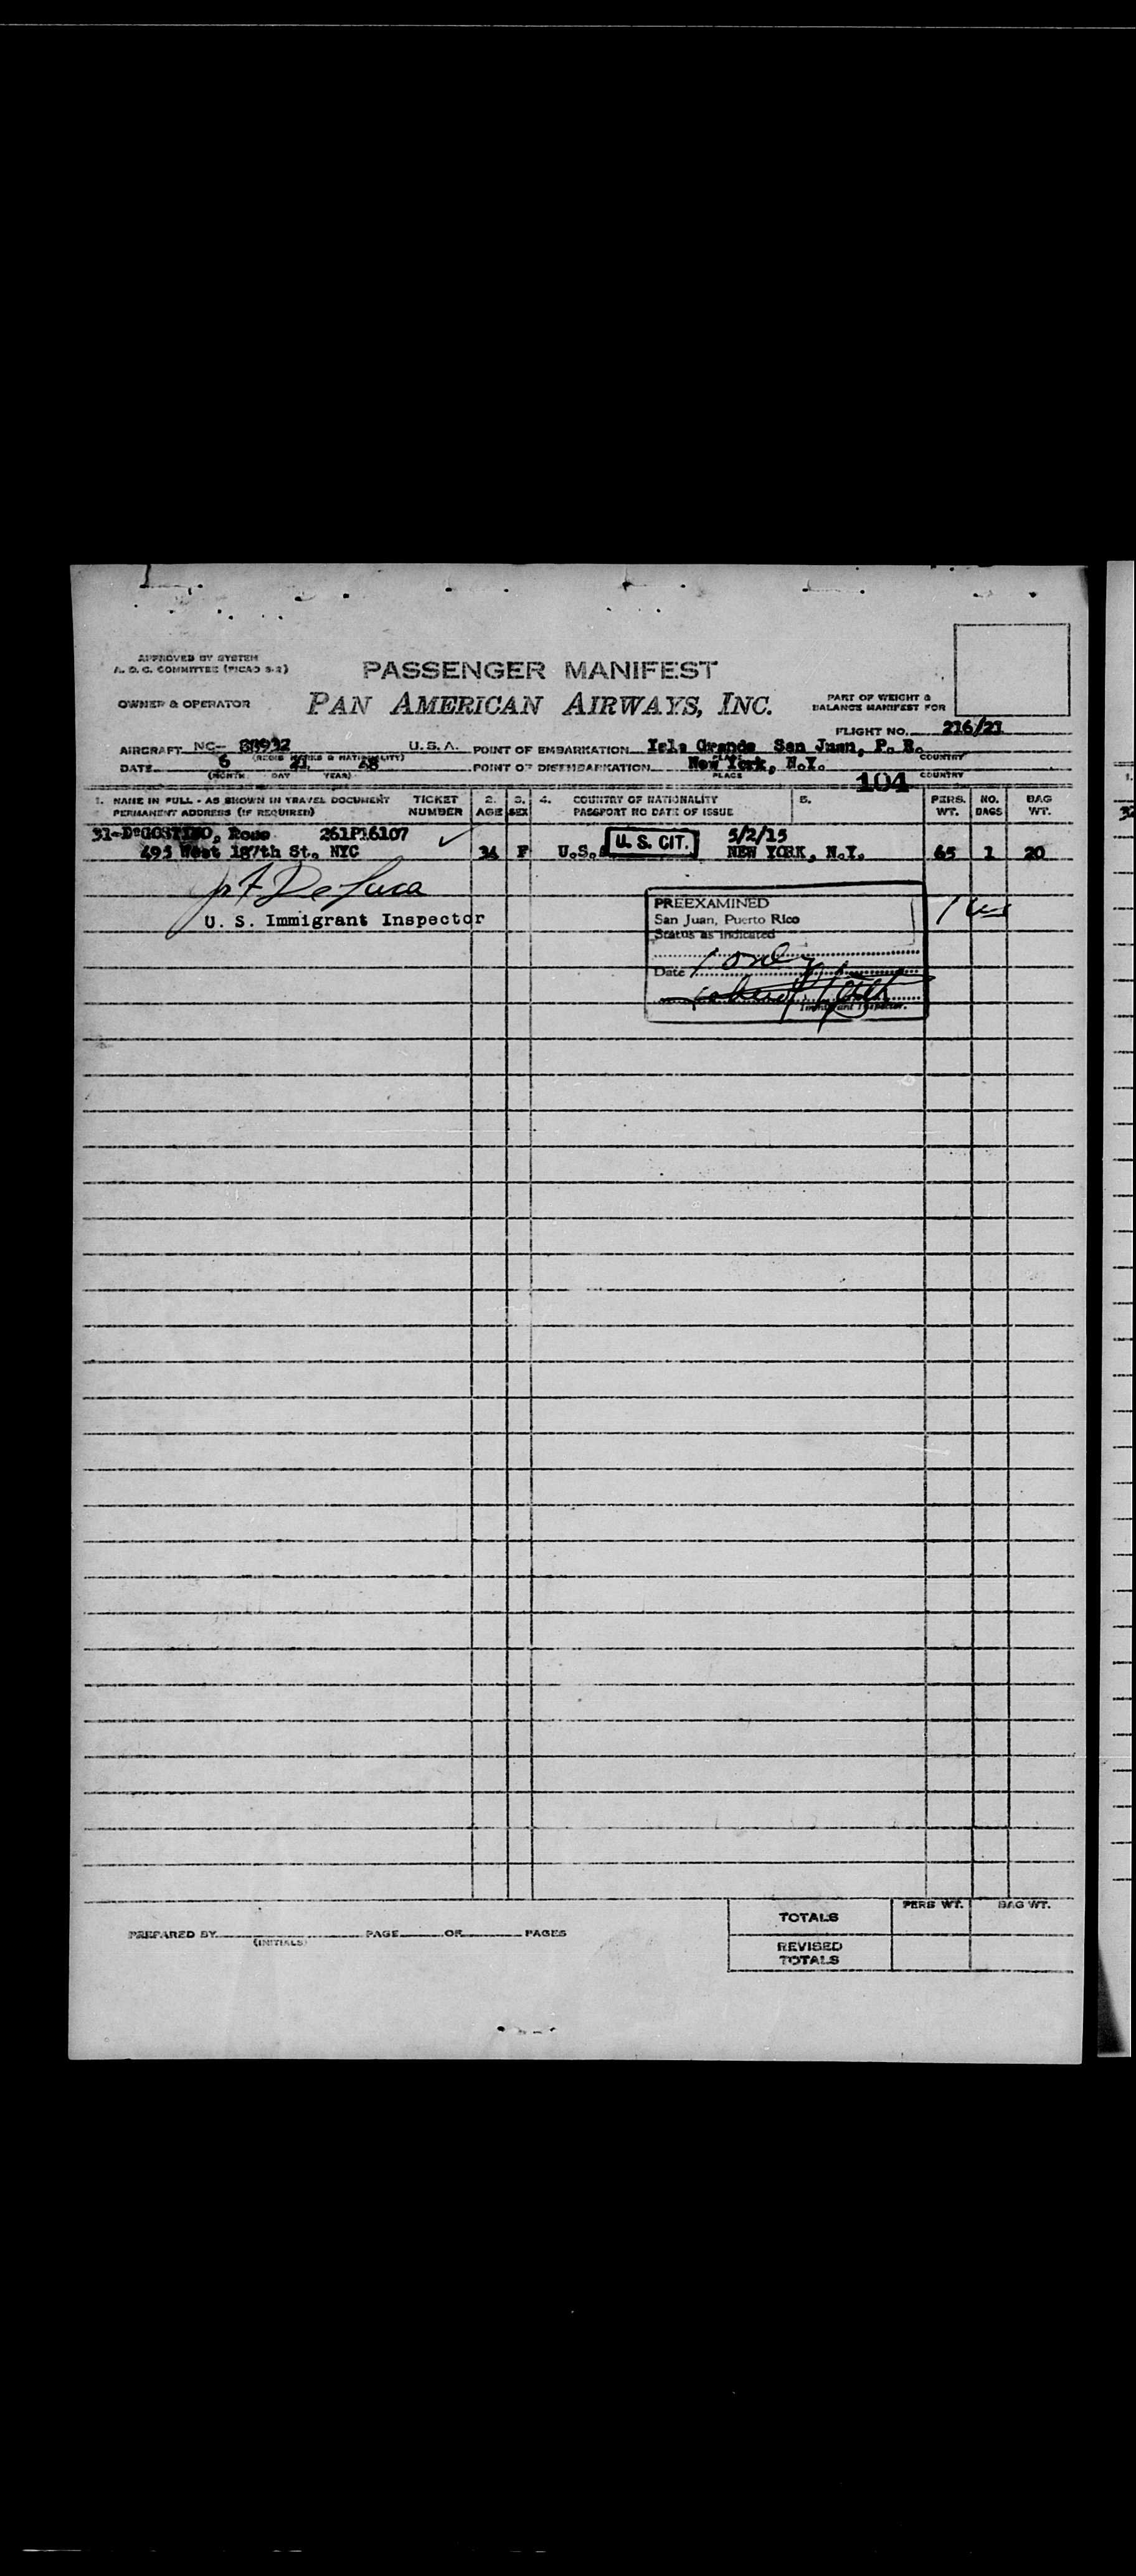 APPROVED BY SYSTEM
A. O. C. COMMITTEE (PICAO 3-2)
PASSENGER MANIFEST
OWNER & OPERATOR PAN AMERICAN AIRWAYS, INC.
PART OF WEIGHT &
BALANCE MANIFEST FOR
FLIGHT NO. 216/21
AIRCRAFT NC- 88932 U.S.A. POINT OF EMBARKATION Isla Grande San Juan, P. R.
(REGIS MARKS & NATIONALITY) PLACE COUNTRY
DATE 6 21 48 POINT OF DISEMBARKATION New York, N.Y.
(MONTH DAY YEAR) PLACE 104 COUNTRY
1. NAME IN FULL - AS SHOWN IN TRAVEL DOCUMENT TICKET 2. 3. 4. COUNTRY OF NATIONALITY 5. PERS. NO. BAG
PERMANENT ADDRESS (IF REQUIRED) NUMBER AGE SEX PASSPORT NO DATE OF ISSUE WT. BAGS WT.
31-D'GOSTINO, Rose 261P16107 5/2/15
495 West 187th St. NYC 34 F U.S. U. S. CIT. NEW YORK, N.Y. 65 1 20
De Luca
U. S. Immigrant Inspector
PREEXAMINED
San Juan, Puerto Rico
Status as indicated
1 only
Date
Immigrant Inspector.
1 usc
PREPARED BY PAGE OF PAGES
(INITIALS)
PERS WT. BAG WT.
TOTALS
REVISED
TOTALS